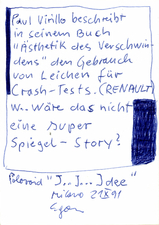 Paul Virilio beschreibt
in seinem Buch
"Ästhetik des Verschwin-
dens" den Gebrauch
von Leichen für
Crash-Tests. (RENAULT)
w.. Wäre das nicht
eine super
Spiegel-Story?
Polaroid "J..J...J dee"
Milano 21 XI 91
Egon